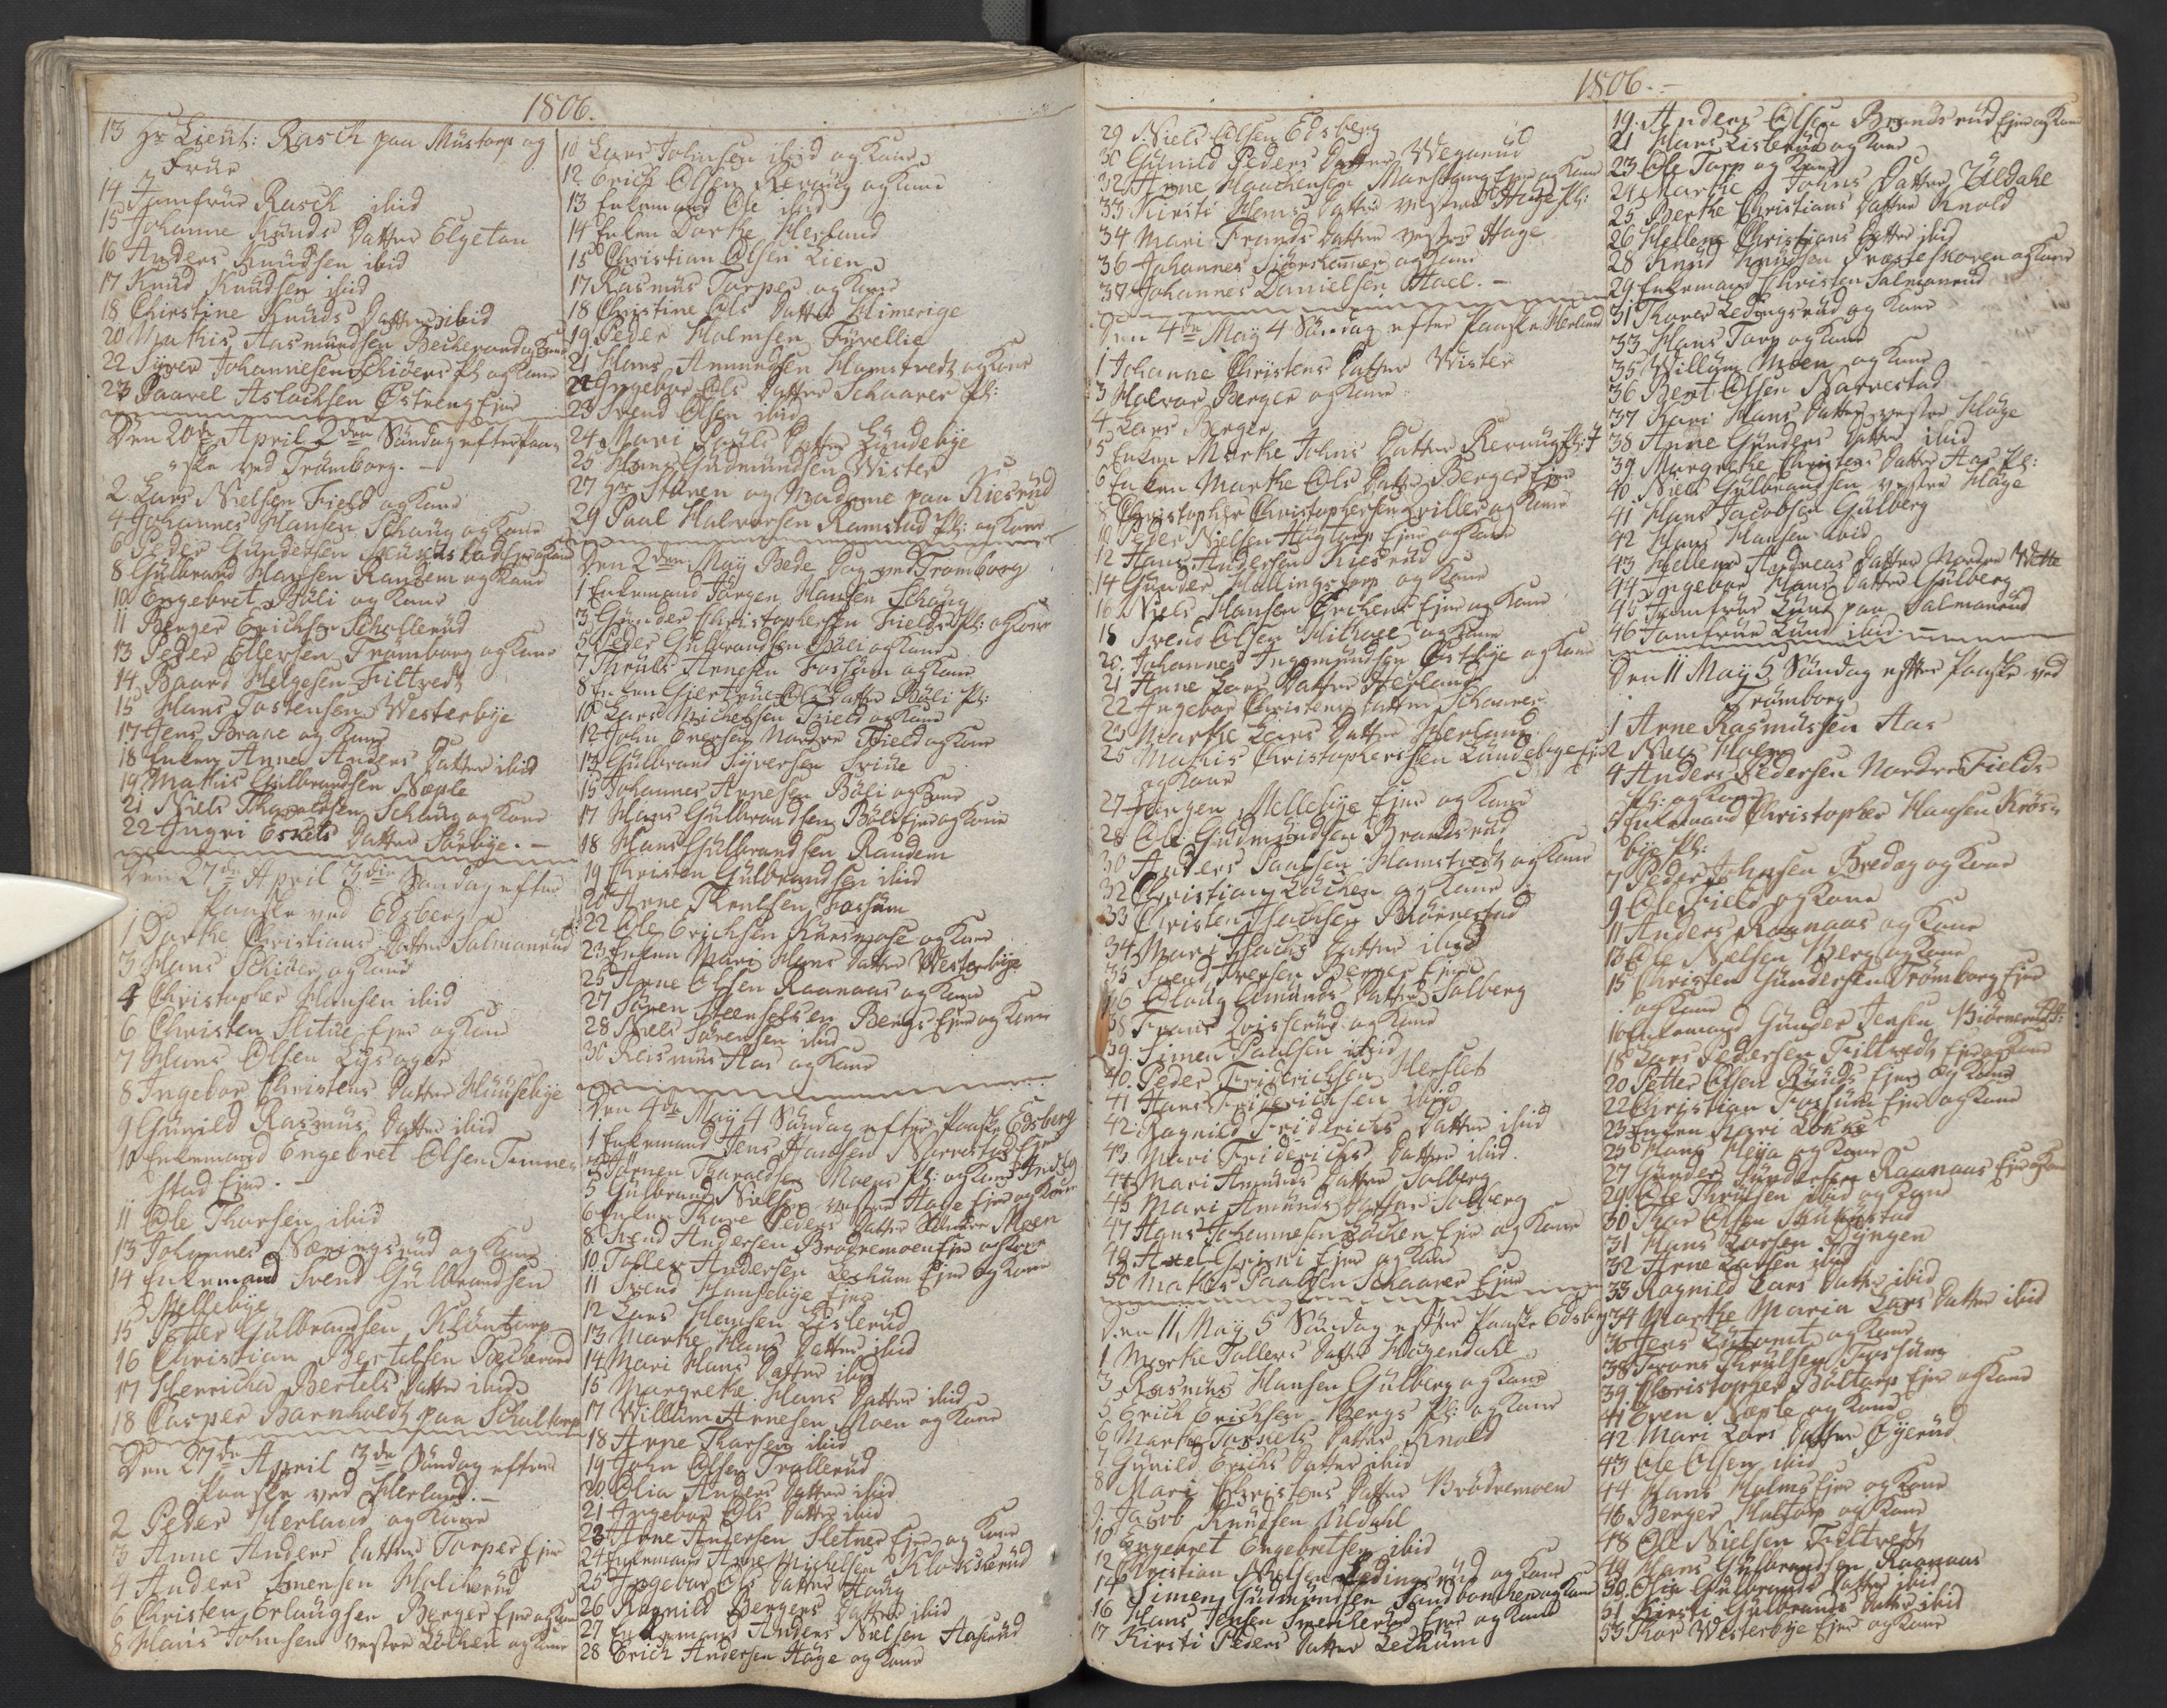 1806.
13 Hr Lieut: Rasch paa Mustorp og
Frue
14 Jomfrue Rasch ibid
15 Johanne Knuds Datter Elgetun
16 Anders Knudsen ibid
17 Knud Knudsen ibid
18 Christine Knuds Datter ibid
20 Mathis Aasmundsen og Kone
22 Syver Johannesen Schiøens Pl: og Kone
23 Paavel Aslachsen Østreng Ejer
Den 20de April 2den Søndag efter Paa-
ske ved Trømborg. –
2. Lars Nielsen Field og Kone
4 Johannes Hansen Schaug og Kone
6 Peder Gundersen Ejer og Kone
8 Gulbrand Hansen Randem og Kone
10 Engebret Bøli og Kone
11 Berger Erichsen Schollerud
13 Peder Ellefsen Trømborg og Kone
14 Baard Helgesen Filtvedt
15 Hans Tostensen Westerbye
17 Jens Brake og Kone
18 Enken Anne Anders Datter ibid
19 Mathis Gulbrandsen Næple
21 Niels Thoraldsen Schaug og Kone
22 Ingri Eskels Datter Sørbye. –
Den 27de April 3die Søndag efter
Paaske ved Edsberg
1 Dorthe Christians Datter Salmonrud
3 Hans Schiøen og Kone
4 Christopher Hansen ibid
6 Christen Slitue Ejer og Kone
7 Hans Olsen Lysager
8 Ingebor Christens Datter Huusebye
9 Gunild Rasmus Datter ibid
10 Enkemand Engebret Olsen Temme-
stad Ejer. –
11 Ole Thorsen ibid
13 Johannes Næringsrud og Kone
14 Enkemand Svend Gulbrandsen
Mellebye
15 Peder Gulbrandsen Kløntorp
16 Christian Bertelsen Becherond
17 Henricha Bertels Datter ibid
18 Casper Barnholdt paa Schaltorp
Den 27de April 3de Søndag efter
Paaske ved Herland. –
2 Peder Herland og Kone
3 Anne Anders Datter Torper Ejer
4 Anders Simensen Holikerud
6 Christen Erlaugsen Berger Ejer og Kone
8 Hans Johnsen vestre Løchen og Kone
10 Lars Johnsen ibid og Kone
12 Erich Olsen Revaug og Kone
13 Enkemand Ole ibid
14 Enken Dorthe Herland
15 Christian Olsen Lien
17 Rasmus Torper og Kone
18 Christine Ols Datter Himerige
19 Peder Holmsen Fyrellie
21 Hans Amundsen Hamstvedt og Kone
22 Ingebor Ols Datter Schaarer Pl:
23 Svend Olsen ibid
24 Mari Pouls Datter Lundebye
25 Hans Gudmundsen Wister
27 Hr Stüren og Madame paa Kiesrud
29 Paul Halvorsen Ramstad Pl: og Kone
Den 2den May Bede Dag ved Trømborg
1 Enkemand Jørgen Hansen Schaug
3 Gunder Christophersen Fields Pl: og Kone
5 Peder Gulbrandsen Bøli og Kone
7 Thruls Arnesen Fossum og Kone
8 Enken Giertrue Ols Datter Bøli Pl:
10 Lars Michelsen Field og Kone
12 John Evensen Nordre Field og Kone
13 Gulbrand Syversen Friue
15 Johannes Arnesen Bøli og Kone
17 Hans Gulbrandsen Bøli Ejer og Kone
18 Hans Gulbrandsen Randem
19 Christen Gulbrandsen ibid
20 Arne Thrulsen Fossum
22 Ole Erichsen og Kone
23 Enken Mari Hans Datter Westerbye
25 Arne Olsen Raanaas og Kone
27 Søren Steensetsen Bergs Ejer og Kone
28 Niels Sørensen ibid
30 Rasmus Aas og Kone
Den 4de May 4 Søndag efter Paaske Edsberg
1 Enkemand Jens Hansen Narvestad Ejer
3 Jørnen Tharaldsen Moens Pl: og Kone
5 Gulbrand Nielsen vestre Hage Ejer og Kone
6 Enken Thore Peders Datter Moen
8. Svend Andersen Brødremoen Ejer og Kone
10. Tollev Andersen Lechum Ejer og Kone
11 Svend Hansebye Ejer
12 Lars Hansen Lislerud
13 Marthe Hans Datter ibid
14 Mari Hans Datter ibid
15 Margrethe Hans Datter ibid
17 Willum Arnesen Moen og Kone
18 Arne Thorsen ibid
19 John Olsen Trollerud
20. Olia Anders Datter ibid
21 Ingebor Ols Datter ibid
23 Arne Andersen Sletner Ejer og Kone
24 Enkemand Arne Michelsen Klokkerud
25 Ingebor Ols Datter Haug
26 Ragnild Bergers Datter ibid
27 Enkemand Anders Nielsen Aaserud
28 Erich Andersen Hage og Kone
1806. –
29 Niels Olsen Edsberg
30 Gunild Peders Datter Wegnerud
32 Arne Haachensen Morstong Ejer og Kone
33 Kirsti Hans Datter vestre Hage Pl:
34 Mari Frands Datter vestre Hage
36 Johannes og Kone
37 Johannes Danielsen Hoel. –
Den 4de May 4 Søndag efter Paaske Herland
1 Johanne Christens Datter Wister
3 Halvor Berger og Kone
4 Lars Berger
5 Enken Marthe Johns Datter Revaug Pl:
6 Enken Marthe Ols Datter Berger Ejer
8 Christopher Christophersen Qviller og Kone
10 Peder Nielsen Hagtorp Ejer og Kone
12 Hans Andersen Kiesrud
14 Gunder Hallingstorp og Kone
16 Niels Hansen Erchens Ejer og Kone
18 Svend Olsen Mithael og Kone
20. Johannes Ingemundsen Østebye og Kone
21 Anne Lars Datter Herland
22 Ingebor Christens Datter Schaarer
23 Marthe Lars Datter Herland
25 Mathis Christophersen Lundebye Ejer
og Kone
27 Jørgen Mellebye Ejer og Kone
28 Ole Gudmundsen Brandsrud
30 Anders Paulsen Hamstvedt og Kone
32 Christian Løchen og Kone
33 Christen Isachsen Biørnestad
34 Mari Isachs Datter ibid
35 Svend Iversen Berger Ejer
36 Oloug Amunds Datter Solberg
38 Frans Qvisserud og Kone
39. Simen Paalsen ibid
40. Peder Friderichsen Herslet
41 Hans Friderichsen ibid
42. Ragnild Friderichs Datter ibid
43 Mari Friderichs Datter ibid.
44 Mari Amunds Datter Solberg
45 Mari Amunds Datter Solberg
47 Hans Johannesen Løchen Ejer og Kone
49 Axel Grini Ejer og Kone
50 Mathis Paalsen Schaarer Ejer
Den 11 May 5 Søndag efter Paaske Edsberg
1 Marthe Tollevs Datter Høgendahl
3 Rasmus Hansen Gulberg og Kone
5 Erich Erichsen Bergs Pl: og Kone
6 Marthe Torkels Datter Knold
7 Gunild Erichs Datter ibid
8 Mari Christens Datter Brødremoen
9. Jacob Knudsen Uldahl
10 Engebret Engebretsen ibid
12 Christian Nielsen Ledingsrud og Kone
14 Simen Gudmundsen Sandbonhen og Kone
16 Hans Jensen Smedlerud Ejer og Kone
17 Kirsti Peders Datter Lechum
19. Anders Olsen Brandsrud Ejer og Kone
21 Hans Lislerud og Kone
23 Ole Torp og Kone
24 Marthe Johns Datter Uldahl
25 Berthe Christians Datter Knold
26 Hellene Christians Datter ibid
28 Knud Knudsen Præsteskoven og Kone
29 Enkemand Christen Salmonrud
31 Thorer Ledingsrud og Kone
33 Hans Torp og Kone
35 Willum Moen og Kone
36 Bent Olsen Narvestad
37 Kari Hans Datter vestre Hage
38 Anne Gunders Datter ibid
39 Margrethe Christens Datter Aas Pl:
40 Niels Gulbrandsen vestre Hage
41 Hans Jacobsen Gulberg
42 Hans Hansen ibid
43 Hellene Andreas Datter Nordre Wette
44 Ingebor Hans Datter Gulberg
45 Jomfrue Lund paa Salmonrud
46 Jomfrue Lund ibid. –
Den 11 May 5 Søndag efter Paaske ved
Trømborg
1 Arne Rasmussen Aas
2 Niels Moen
4 Anders Pedersen Nordre Fields
Pl: og Kone
5 Enkemand Christopher Hansen Krøs-
bye Pl:
7 Peder Johnsen Bredag og Kone
9 Ole Field og Kone
11 Anders Raanaas og Kone
13 Ole Nielsen Berg og Kone
15 Christen Gundersen Trømborg Ejer
og Kone
16 Enkemand Gunder Jensen Biørnerud Pl:
18 Lars Pedersen Filtvedt Ejer og Kone
20 Petter Olsen Ruuds Ejer og Kone
22 Christian Fossum Ejer og Kone
23 Enken Kari Løkke
25 Hans Heya og Kone
27 Gunder Gundersen Raanaas Ejer og Kone
29 Ole Thrulsen ibid og Kone
30 Thor Olsen
31 Hans Larsen Dyngen
32 Arne Larsen ibid
33 Ragnild Lars Datter ibid
34 Marthe Maria Lars Datter ibid
36 Jens og Kone
38 Frans Thrulsen Fossum
39 Christopher Boltorp Ejer og Kone
41 Even Næple og Kone
42 Mari Lars Datter Øyerud
43 Ole Olsen ibid
44 Hans Holmes Ejer og Kone
46 Berger Holtorp og Kone
48 Ole Nielsen Filtvedt
49 Hans Gulbrandsen Raanaas
50. Olia Gulbrands Datter ibid
51 Kirsti Gulbrands Datter ibid
53 Thor Westerbye Ejer og Kone